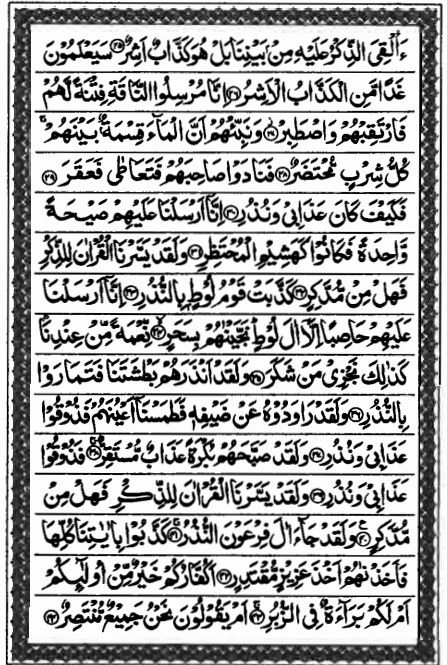 ءَاُلْقِیَ الذِّكْرُ عَلَیْهِ مِنْۢ بَیْنِنَا بَلْ هُوَ كَذَّابٌ اَشِرٌ ۝۲۵ سَیَعْلَمُوْنَ
غَدًا مَّنِ الْكَذَّابُ الْاَشِرُ ۝۲۶ اِنَّا مُرْسِلُوا النَّاقَةِ فِتْنَةً لَّهُمْ
فَارْتَقِبْهُمْ وَاصْطَبِرْ ۝۲۷ وَنَبِّئْهُمْ اَنَّ الْمَآءَ قِسْمَةٌۢ بَیْنَهُمْ ۚ
كُلُّ شِرْبٍ مُّحْتَضَرٌ ۝۲۸ فَنَادَوْا صَاحِبَهُمْ فَتَعَاطٰی فَعَقَرَ ۝۲۹
فَكَیْفَ كَانَ عَذَابِیْ وَنُذُرِ ۝۳۰ اِنَّاۤ اَرْسَلْنَا عَلَیْهِمْ صَیْحَةً
وَّاحِدَةً فَكَانُوْا كَهَشِیْمِ الْمُحْتَظِرِ ۝۳۱ وَلَقَدْ یَسَّرْنَا الْقُرْاٰنَ لِلذِّكْرِ
فَهَلْ مِنْ مُّدَّكِرٍ ۝۳۲ كَذَّبَتْ قَوْمُ لُوْطٍۭ بِالنُّذُرِ ۝۳۳ اِنَّاۤ اَرْسَلْنَا
عَلَیْهِمْ حَاصِبًا اِلَّاۤ اٰلَ لُوْطٍ ؕ نَجَّیْنٰهُمْ بِسَحَرٍ ۝۳۴ نِّعْمَةً مِّنْ عِنْدِنَا ؕ
كَذٰلِكَ نَجْزِیْ مَنْ شَكَرَ ۝۳۵ وَلَقَدْ اَنْذَرَهُمْ بَطْشَتَنَا فَتَمَارَوْا
بِالنُّذُرِ ۝۳۶ وَلَقَدْ رَاوَدُوْهُ عَنْ ضَیْفِهٖ فَطَمَسْنَاۤ اَعْیُنَهُمْ فَذُوْقُوْا
عَذَابِیْ وَنُذُرِ ۝۳۷ وَلَقَدْ صَبَّحَهُمْ بُكْرَةً عَذَابٌ مُّسْتَقِرٌّ ۝۳۸ فَذُوْقُوْا
عَذَابِیْ وَنُذُرِ ۝۳۹ وَلَقَدْ یَسَّرْنَا الْقُرْاٰنَ لِلذِّكْرِ فَهَلْ مِنْ
مُّدَّكِرٍ ۝۴۰ وَلَقَدْ جَآءَ اٰلَ فِرْعَوْنَ النُّذُرُ ۝۴۱ كَذَّبُوْا بِاٰیٰتِنَا كُلِّهَا
فَاَخَذْنٰهُمْ اَخْذَ عَزِیْزٍ مُّقْتَدِرٍ ۝۴۲ اَكُفَّارُكُمْ خَیْرٌ مِّنْ اُولٰٓئِكُمْ
اَمْ لَكُمْ بَرَآءَةٌ فِی الزُّبُرِ ۝۴۳ اَمْ یَقُوْلُوْنَ نَحْنُ جَمِیْعٌ مُّنْتَصِرٌ ۝۴۴